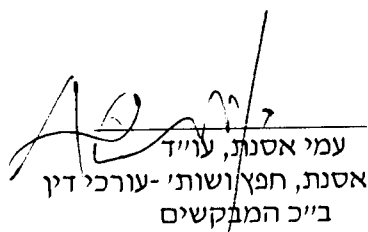 עמי אסנת, עו"ד
אסנת, חפץ ושות' -עורכי דין
ב"כ המבקשים